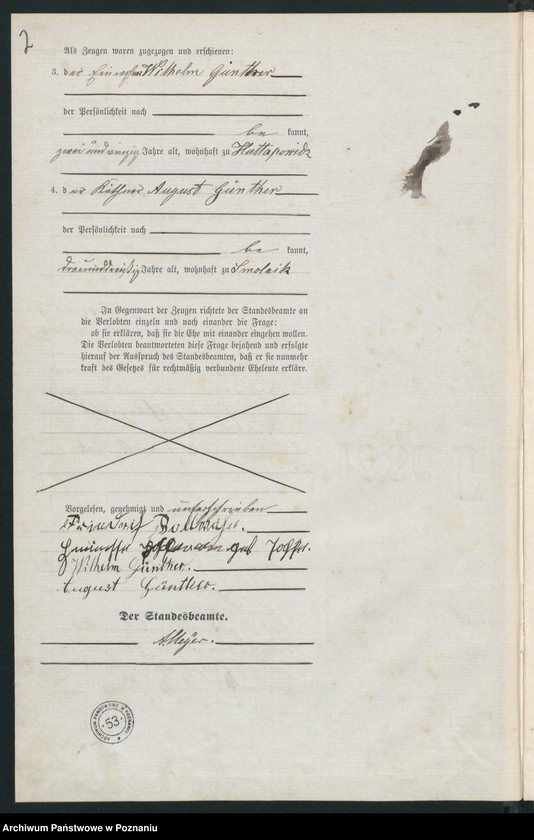 2
Als Zeugen waren zugezogen und erschienen:
3. der Wilhelm Günther
der Persönlichkeit nach
be kannt,
zwei und zwanzig Jahre alt, wohnhaft zu
4. der August Günther
der Persönlichkeit nach
be kannt,
Jahre alt, wohnhaft zu Smolnik
In Gegenwart der Zeugen richtete der Standesbeamte an
die Verlobten einzeln und nach einander die Frage:
ob sie erklären, daß sie die Ehe mit einander eingehen wollen.
Die Verlobten beantworteten diese Frage bejahend und erfolgte
hierauf der Ausspruch des Standesbeamten, daß er sie nunmehr
kraft des Gesetzes für rechtmäßig verbundene Eheleute erkläre.
Vorgelesen, genehmigt und unterschrieben
Friedrich
geb
Wilhelm Günther.
August Günther.
Der Standesbeamte.
Meyer.
ARCHIWUM PAŃSTWOWE W POZNANIU
53
Archiwum Państwowe w Poznaniu